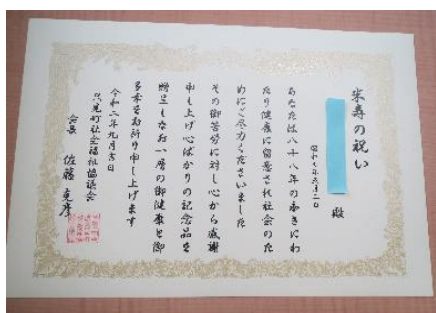 米壽の祝い
殿
あなたは八十八年の永きにわ
たり健康に留意され社会のた
めにご尽力くださいました
その御苦労に対し心から感謝
申し上げ心ばかりの記念品を
贈呈しなお一層の御健康と御
多幸をお祈り申し上げます
令和二年九月吉日
只見町社会福祉協議会
会長 佐藤